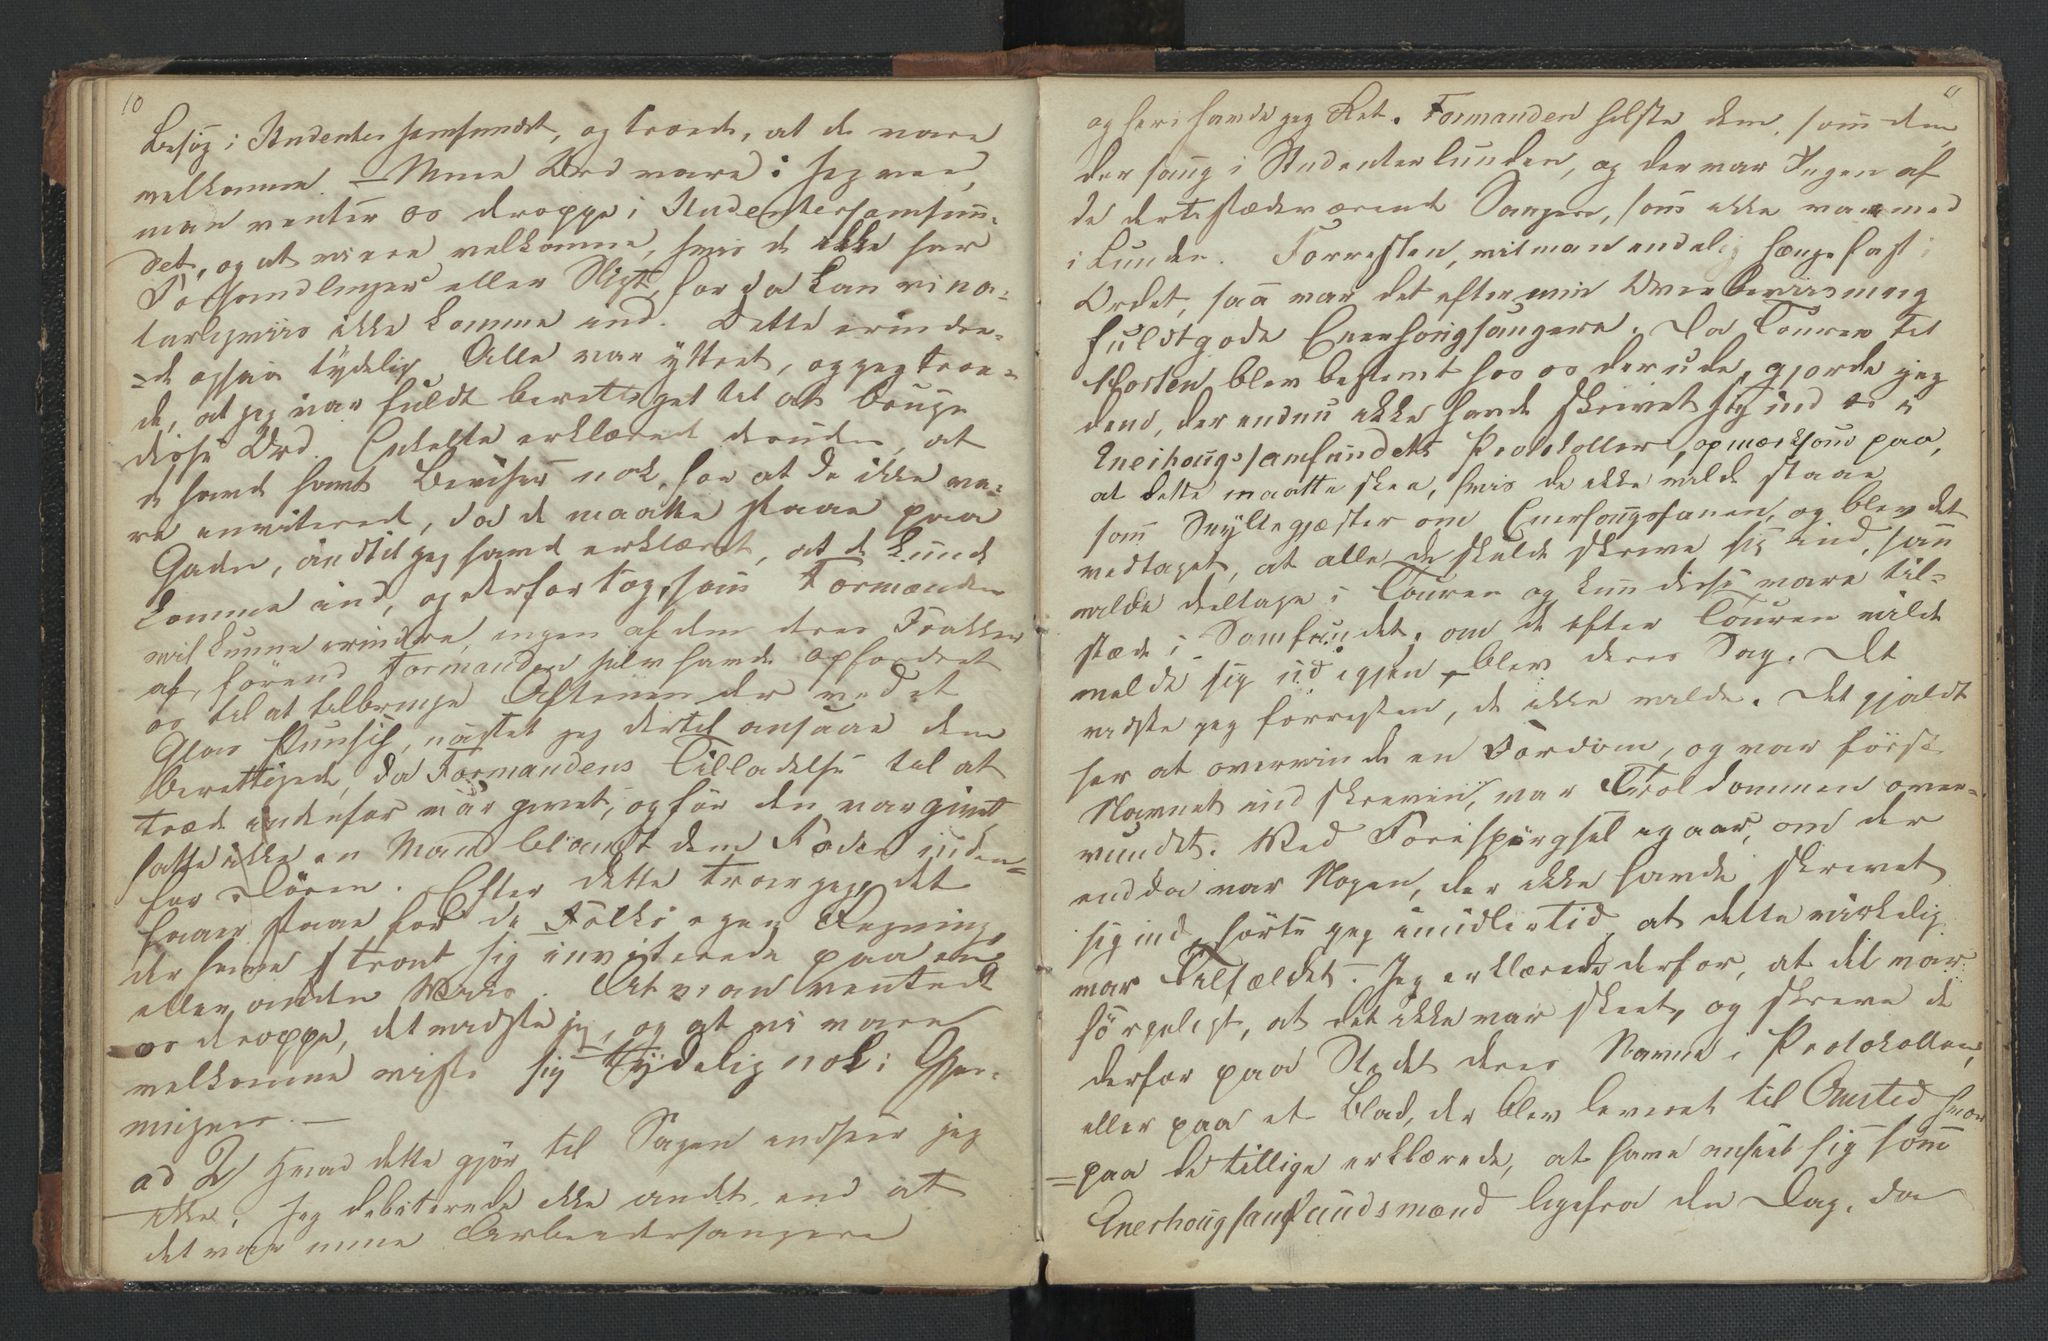 10
Besøg i Studentersamfundet, og troede, at de vare
velkomne. — Mine Ord vare: Jeg veed,
man venter os deroppe i Studentersamfun-
det, og at vi ere velkomne, hvis de ikke har
Forhandlinger eller Sligt, for da kan vi na-
turligviis ikke komme ind. Dette erindre-
=de ogsaa tydelig Alle var yttret, og jeg troe-
de, at jeg var fuldt berettiget til at bruge
disse Ord. Enkelte erklæred desuden, at
de havde havt Beviser nok, for at de ikke va-
re inviterede, da de maatte staae paa
Gaden, indtil jeg havde erklæret, at de kunde
komme ind, og derfor tog, som Formanden
vil kunne erindre, ingen af dem deres Frakker
af, førend Formanden selv havde opfordret
os til at tilbringe Aftenen der ved et
Glas Punsch, næstet jeg dertil ansaae dem
berettiged, da Formandens Tilladelse til at
træde indenfor var givet, og før den var givet
satte ikke en Mand blandt dem Foden inden=
for Døren. Efter dette troer jeg, det
faaer staae for de Folks egen Regning,
der have troet sig inviterede paa en
eller anden Maade. At man ventede
os deroppe, det vidste jeg, og at vi vare
velkomne viste sig tydelig nok i Gjer-
ningen. —
ad 2 Hvad dette gjør til Sagen indseer jeg
ikke. Jeg debiterede ikke andet end at
det var mine Arbeidersangere
11
og heri havde jeg Ret. Formanden hilste dem, som dem,
der sang i Studenterlunden, og der var Ingen af
de dertilstædeværende Sangere, som ikke var med
i Lunden. Forresten, vil man endelig hænge fast i
Ordet, saa var det efter min Overbeviisning
fuldtgode Enerhougsangere. Da Touren til
Thorsten blev bestemt hos os derude, gjorde jeg
dem, der endnu ikke havde skrevet sig ind i
Enerhougssamfundets Protokoller, opmærksom paa,
at dette maatte skee, hvis de ikke vilde staae
som Snyltegjæster om Enerhougsfanen, og blev det
vedtaget, at alle de skulde skrive sig ind, som
vilde deeltage i Touren og kun disse vare til-
stæde i Samfundet; om de efter Touren vilde
melde sig ud igjen, blev deres Sag. Det
vidste jeg forresten, de ikke vilde. Det gjaldt
her at overvinde en Fordom, og var først
Navnet indskreven, var Trolddommen over-
vundet. Ved Forespørgsel igaar, om der
endda var Nogen, der ikke havde skrevet
sig ind, hørte jeg imidlertid, at dette virkelig
var Tilfældet. Jeg erklærede derfor, at det var
sørgeligt, at det ikke var skeet, og skreve de
derfor paa Stedet deres Navne i Protokollen,
eller paa et Blad, der blev leveret til Onsted, hvor
=paa de tillige erklærede, at have anseet sig som
Enerhougsamfundsmænd ligefra den Dag, da